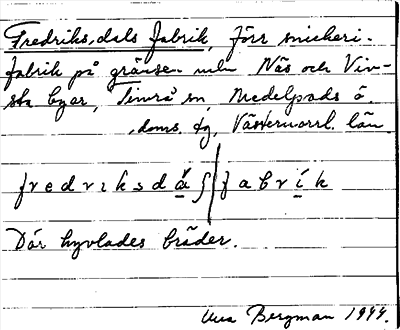 Fredriksdals fabrik, förr snickeri-
fabrik på gränsen mln Näs och Viv-
sta byar, Timrå sn, Medelpads ö.
doms. fg, Västernorrl. län
fredriksdá fabrík
Där hyvlades bräder.
Bergman 1944.